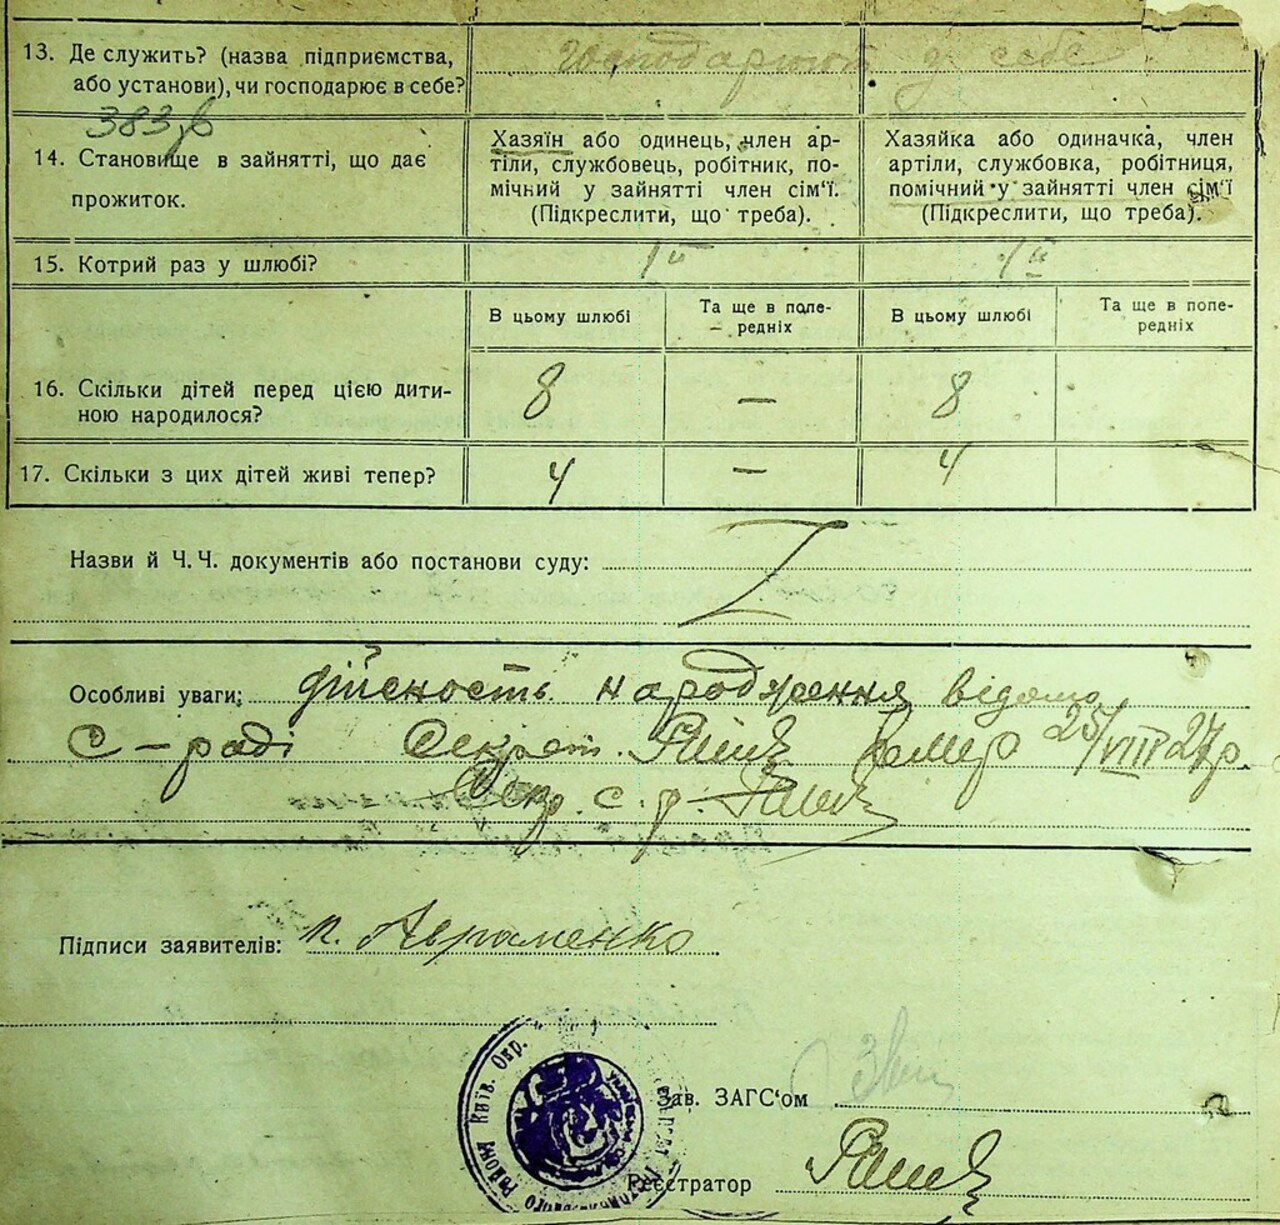 13. Де служить? (назва підприємства, або установи), чи господарює в себе?
Господарюют у себе
383 зв
14. Становище в зайнятті, що дає прожиток.
Хазяїн або одинець, член ар-
тіли, службовець, робітник, по-
мічний у зайнятті член сім'ї.
(Підкреслити, що треба).
Хазяйка або одиначка, член
артіли, службовка, робітниця,
помічний у зайнятті член сім'ї
(Підкреслити, що треба).
15. Котрий раз у шлюбі?
1й
1й
В цьому шлюбі
Та ще в попе-
редніх
В цьому шлюбі
Та ще в попе-
редніх
16. Скільки дітей перед цією дити-
ною народилося?
8 — 8
17. Скільки з цих дітей живі тепер?
4 — 4
Назви й Ч. Ч. документів або постанови суду:
Особливі уваги: дійсность народження відома
с-раді Секрет. 25/VIII 27р.
Секр. с. р.
Підписи заявителів: п. Авраменко
Району Київ. Окр.
Зав. ЗАГС'ом
Реєстратор